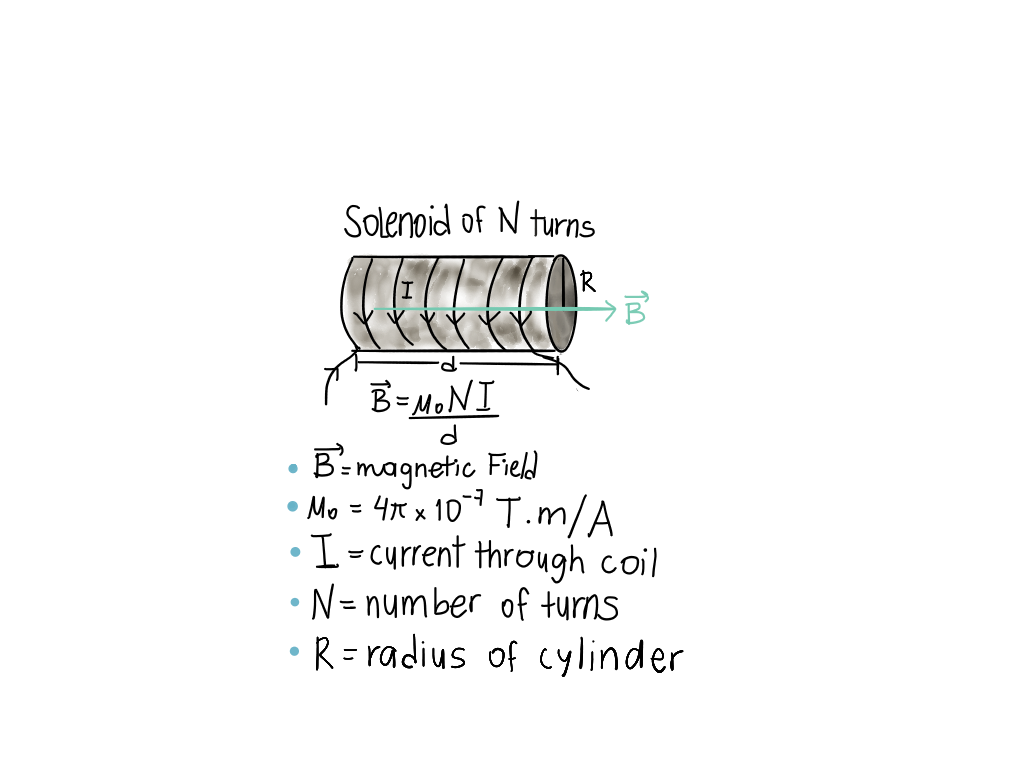 Solenoid of N turns
I
R
B⃗
d
B⃗ = μ₀NI
d
• B⃗ = magnetic Field
• μ₀ = 4π × 10⁻⁷ T.m/A
• I = current through coil
• N = number of turns
• R = radius of cylinder